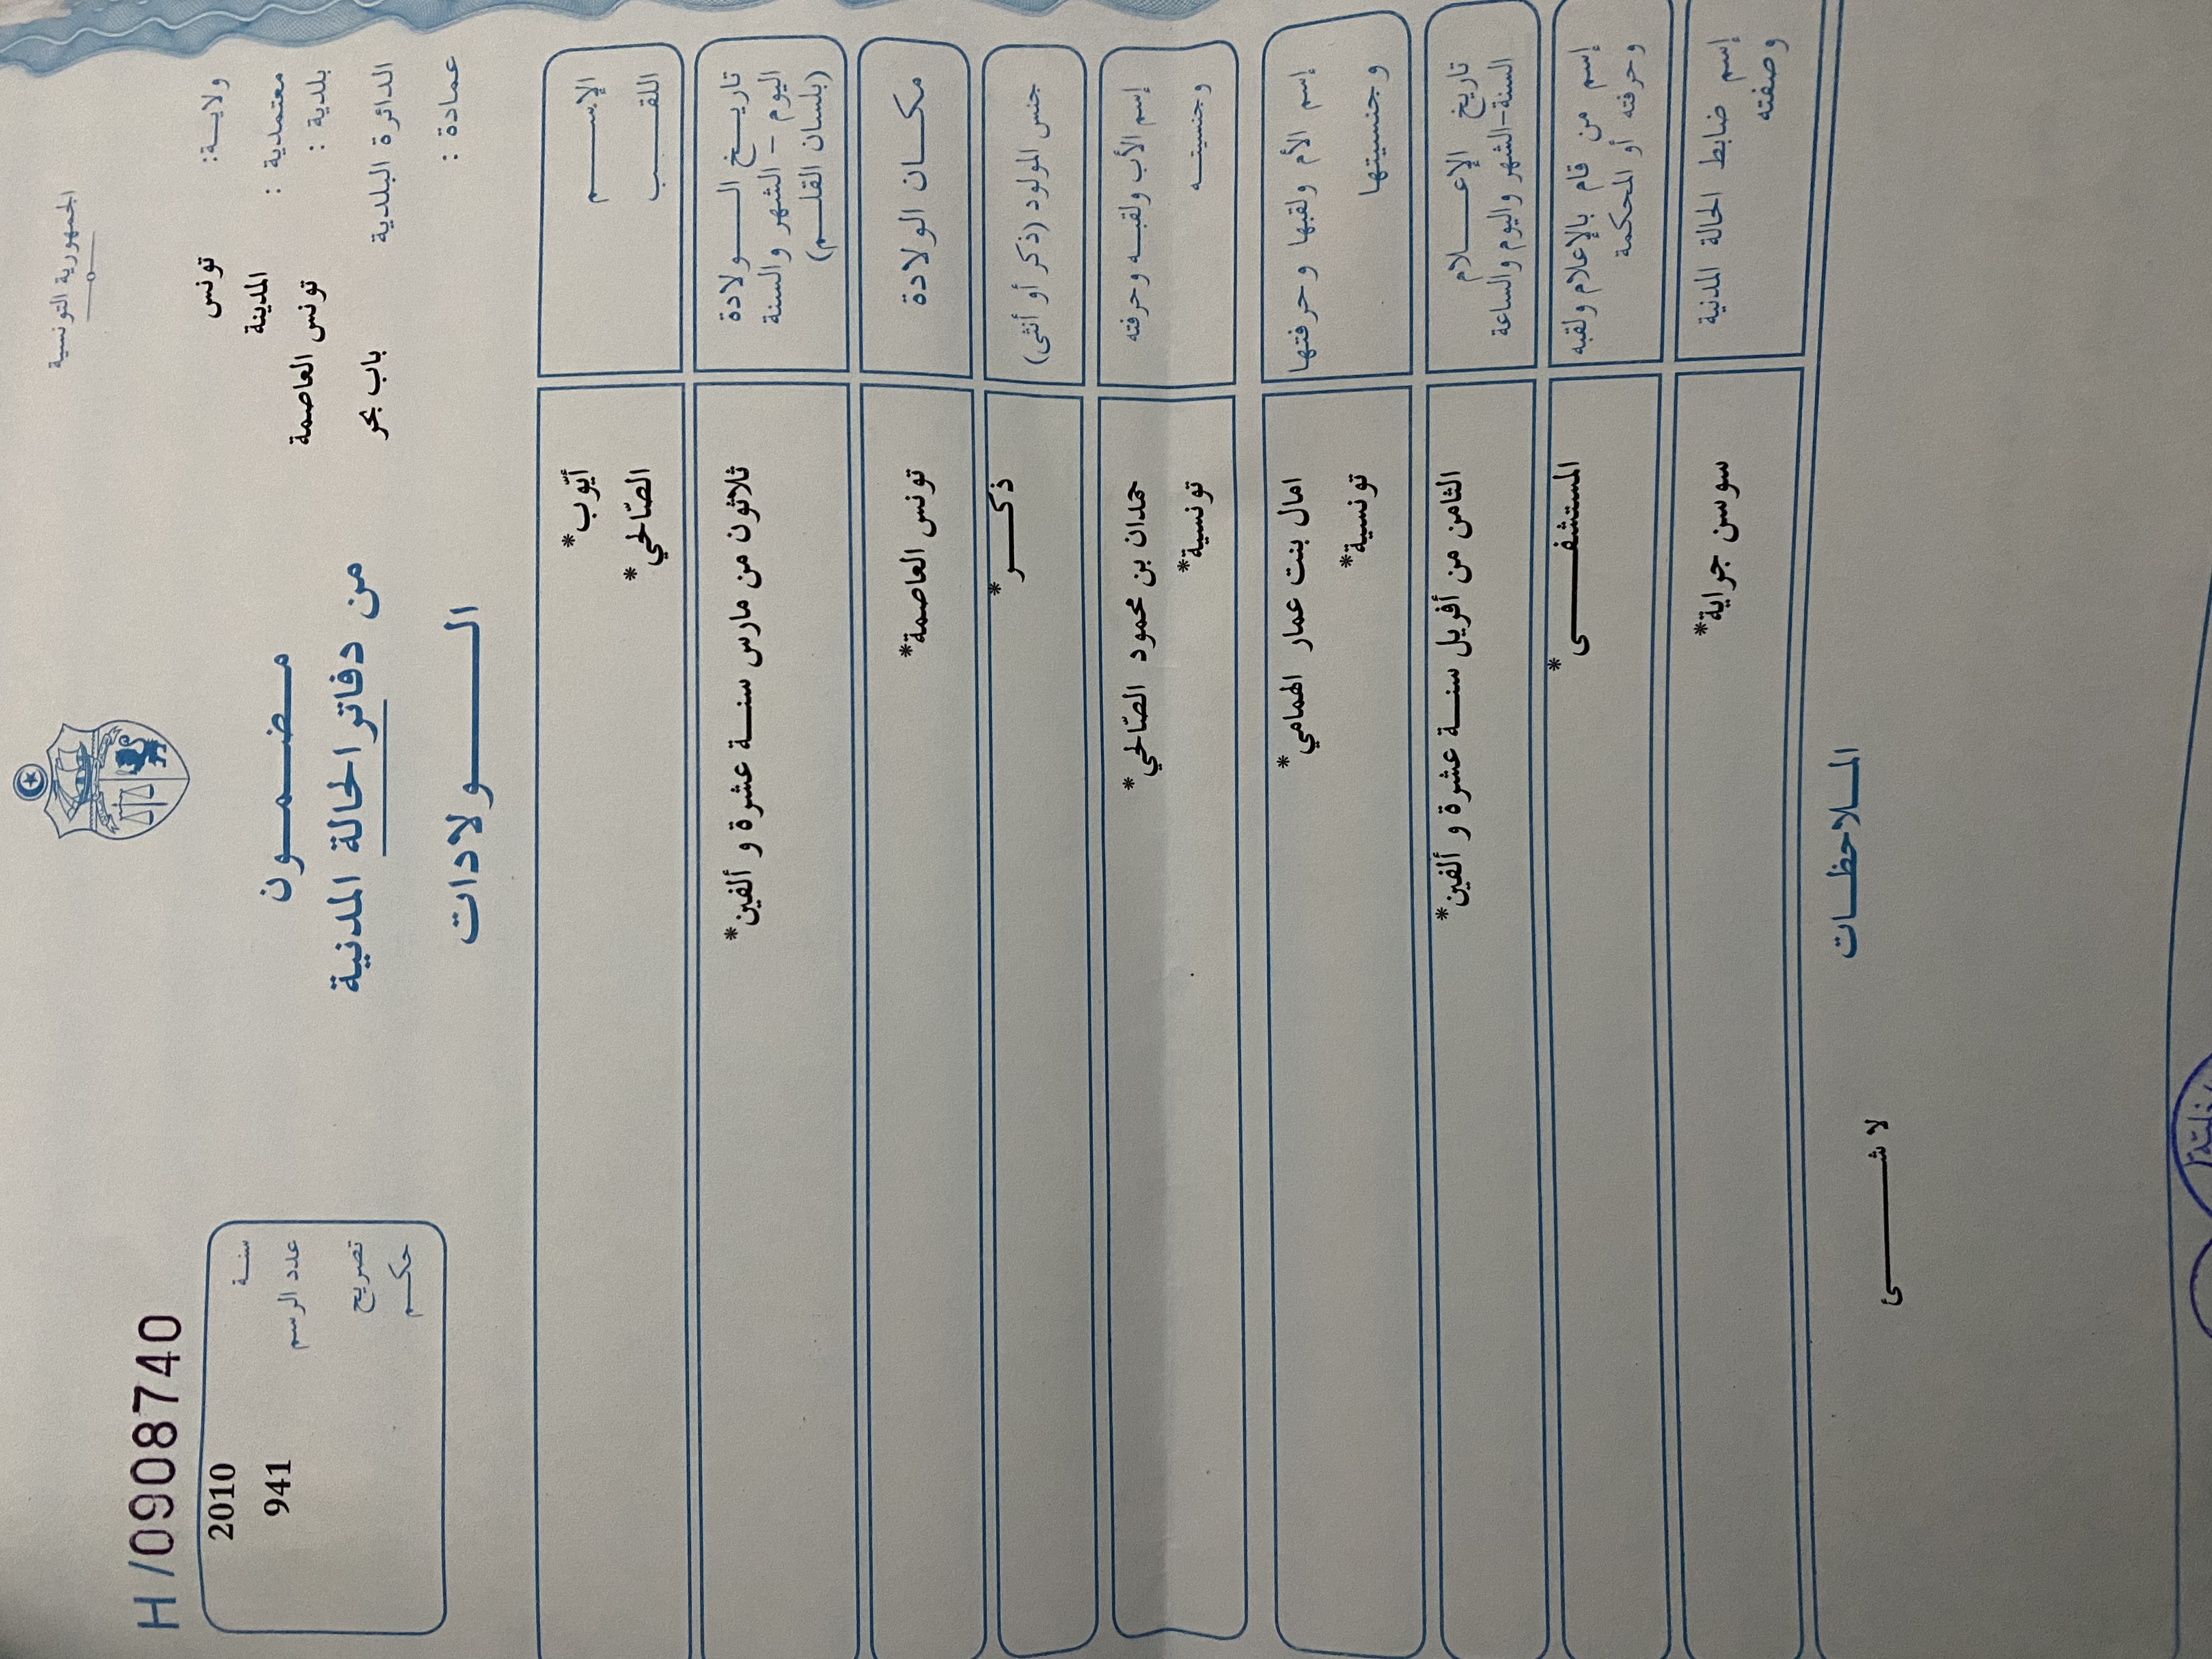 الجمهورية التونسية
H/0908740
ولاية: تونس
معتمدية : المدينة
بلدية : تونس العاصمة
الدائرة البلدية باب بحر
عمادة :
سنة 2010
عدد الرسم 941
تصريح
حكم
مضمون
من دفاتر الحالة المدنية
الولادات
الإسم أيّوب*
اللقب الصّالحي*
تاريخ الولادة ثلاثون من مارس سنة عشرة و ألفين*
اليوم - الشهر والسنة
(بلسان القلم)
مكان الولادة تونس العاصمة*
جنس المولود (ذكر أو أنثى) ذكر*
إسم الأب ولقبه وحرفته حمدان بن محمود الصّالحي*
وجنسيته تونسية*
إسم الأم ولقبها وحرفتها امال بنت عمار الهمامي*
وجنسيتها تونسية*
تاريخ الإعلام الثامن من أفريل سنة عشرة و ألفين*
السنة-الشهر واليوم والساعة
إسم من قام بالإعلام ولقبه المستشفى*
وحرفته أو المحكمة
إسم ضابط الحالة المدنية سوسن جراية*
وصفته
الملاحظات
لا شئ